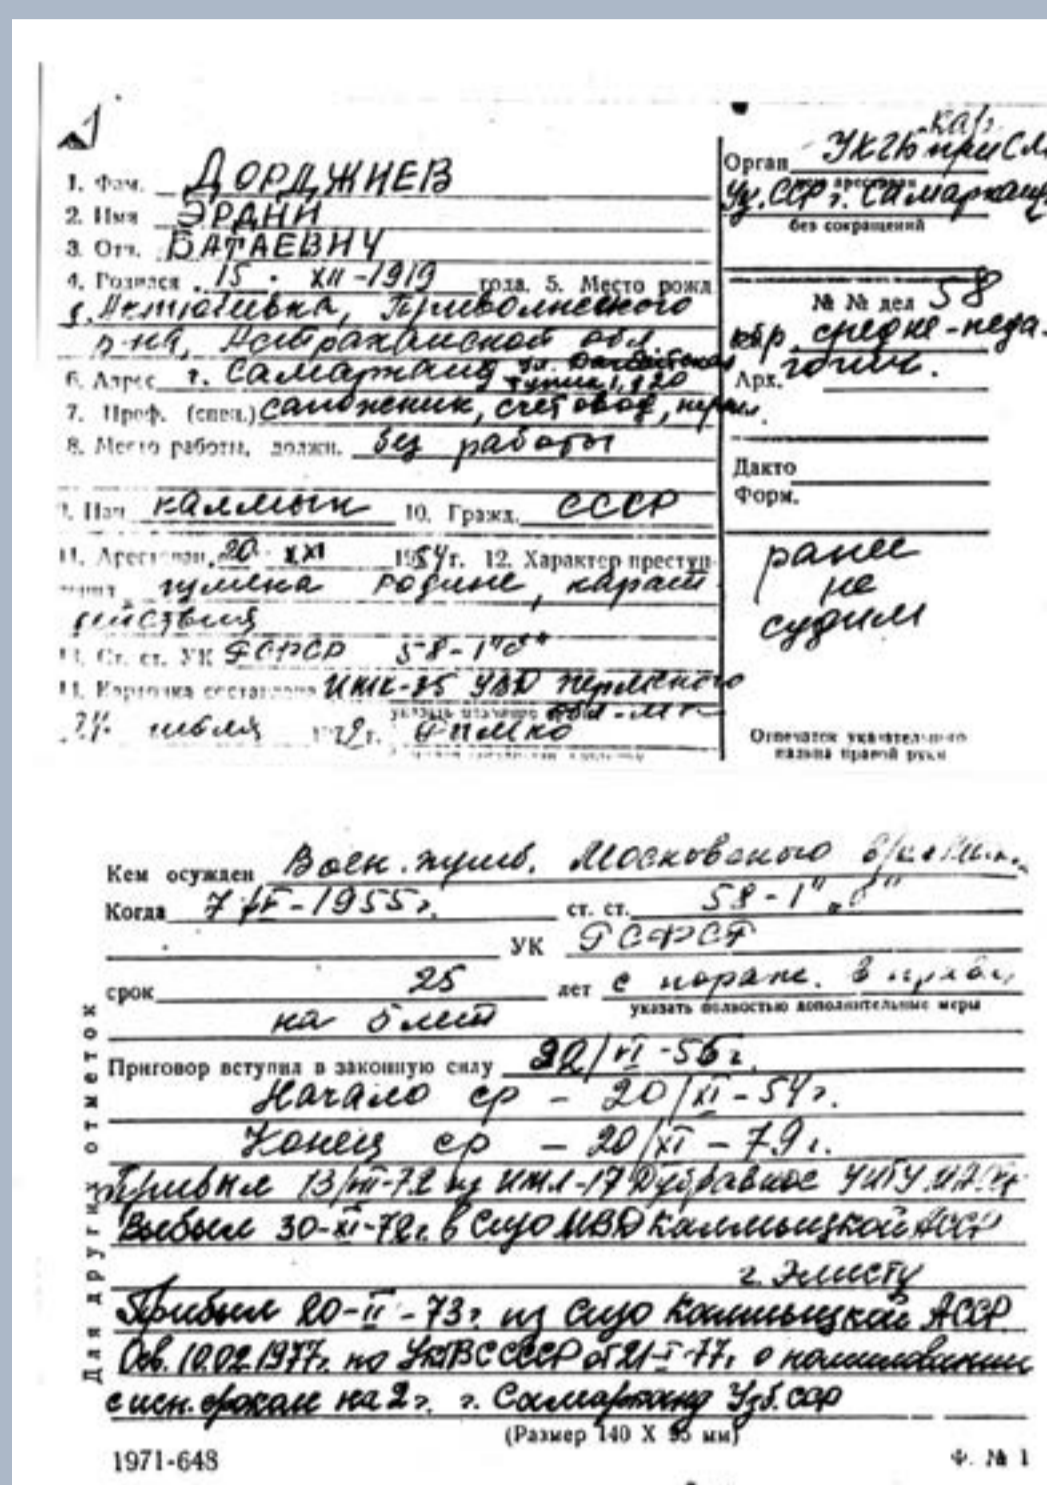 1. Фам. ДОРДЖИЕВ
2. Имя ЭРДНИ
3. Отч. БАТАЕВИЧ
4. Родился 15. XII-1919 года. 5. Место рожд
Приволжского
р-на, Астраханской обл
6. Адрес г. Самарканд ул.
тупик 1, д 20
7. Проф. (спец.) сапожник, счетовод,
8. Место работы, должн. без работы
9. Нац калмык 10. Гражд. СССР
11. Арестован 20 XI 1954 г. 12. Характер преступ-
измена Родине, карат
действия
13. Ст. ст. УК РСФСР 58-1"б"
14. Карточка составлена ИТК-35 УВД Пермского
июля
кар.
Орган УКГБ при СМ
Уз. ССР г. Самарканд
без сокращений
№ № дел 58
обр. средне-педа-
гогич.
Арх.
Дакто
Форм.
ранее
не
судим
Отпечаток указательного
пальца правой руки
Кем осужден Воен. триб. Московского в/
Когда 7 -1955г. ст. ст. 58-1"б"
УК РСФСР
срок 25 лет с пораж. в правах
указать полностью дополнительные меры
на 5 лет
Приговор вступил в законную силу 22/VI-56г.
Начало ср - 20/XI-54г.
Конец ср - 20/XI-79г.
Прибыл 13/VII-72 из ИТЛ-17 Дубравное УИТУ
Выбыл 30-XI-72г. в Сизо МВД Калмыцкой АССР
г. Элисту
Прибыл 20-II-73г из Сизо Калмыцкой АССР
Осв. 10.02.1977г. по УкПВС СССР от 21-I-77г о помиловании
с исп. сроком на 2 г. г. Самарканд Узб. сср
Для других отметок
(Размер 140 X 95 мм)
1971-648
Ф. № 1